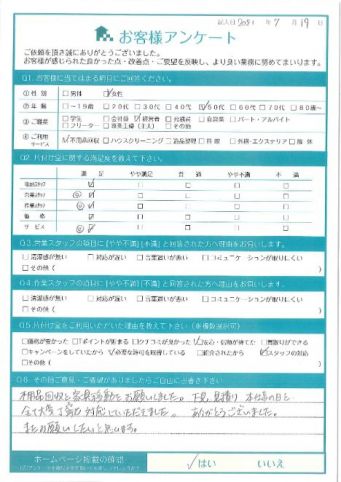 記入日 2021年 7月 19日
お客様アンケート
ご依頼を頂き誠にありがとうございました。
お客様が感じられた良かった点・改善点・ご要望を反映し、より良い業務に努めてまいります。
Q1. お客様に当てはまる項目にご回答ください。
①性別 □男性 ☑女性
②年齢 □~19歳 □20代 □30代 □40代 ☑50代 □60代 □70代 □80歳~
③ご職業 □学生 □会社員 ☑経営者 □公務員 □自営業 □パート・アルバイト
□フリーター □専業主婦(主夫) □その他
④ご利用サービス ☑不用品回収 □ハウスクリーニング □遺品整理 □外構・エクステリア □解体
Q2. 片付け堂に関する満足度を教えて下さい。
満足 やや満足 普通 やや不満 不満
電話スタッフ ☑ □ □ □ □
営業スタッフ ☑ □ □ □ □
作業スタッフ ☑ □ □ □ □
価格 ☑ □ □ □ □
サービス ☑ □ □ □ □
Q3. 営業スタッフの項目に「やや不満」「不満」と回答された方へ理由をお伺いします。
□清潔感が無い □対応が遅い □言葉遣いが悪い □コミュニケーションが取りにくい
□その他( )
Q4. 作業スタッフの項目に「やや不満」「不満」と回答された方へ理由をお伺いします。
□清潔感が無い □対応が遅い □言葉遣いが悪い □コミュニケーションが取りにくい
□その他( )
Q5. 片付け堂をご利用いただいた理由を教えて下さい(※複数選択可)
□価格が安かった □Tポイントが貯まる □クチコミが良かった ☑安心・信頼が持てた □買取りができる
□キャンペーンをしていたから ☑必要な許可を取得している □紹介されたから ☑スタッフの対応
□その他( )
Q6. その他ご意見・ご要望がありましたらご自由にお書き下さい
不用品回収と家具移動をお願いしました。下見、見積り 本作業の日と
全て大変丁寧に対応していただきました。ありがとうございました。
またお願いしたいと思います。
ホームページ掲載の確認
✓はい いいえ